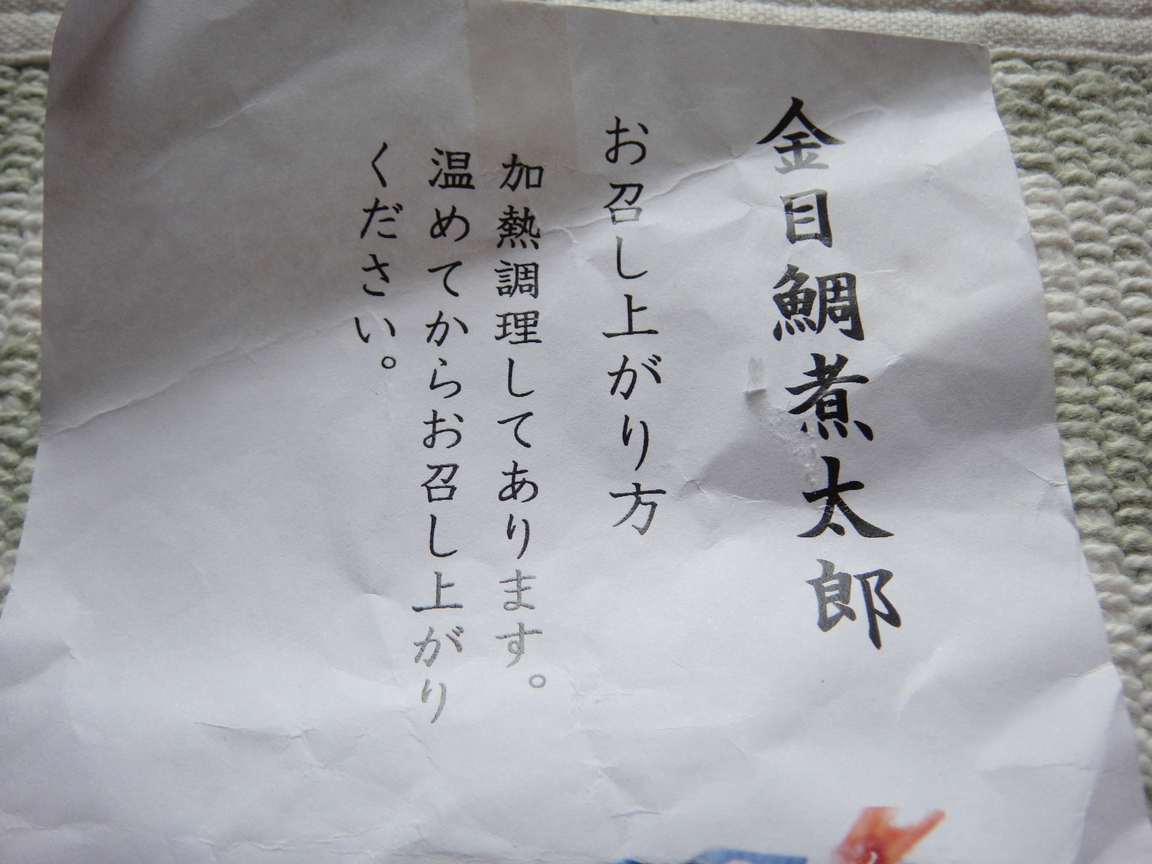 金目鯛煮太郎
お召し上がり方
加熱調理してあります。
温めてからお召し上がり
ください。